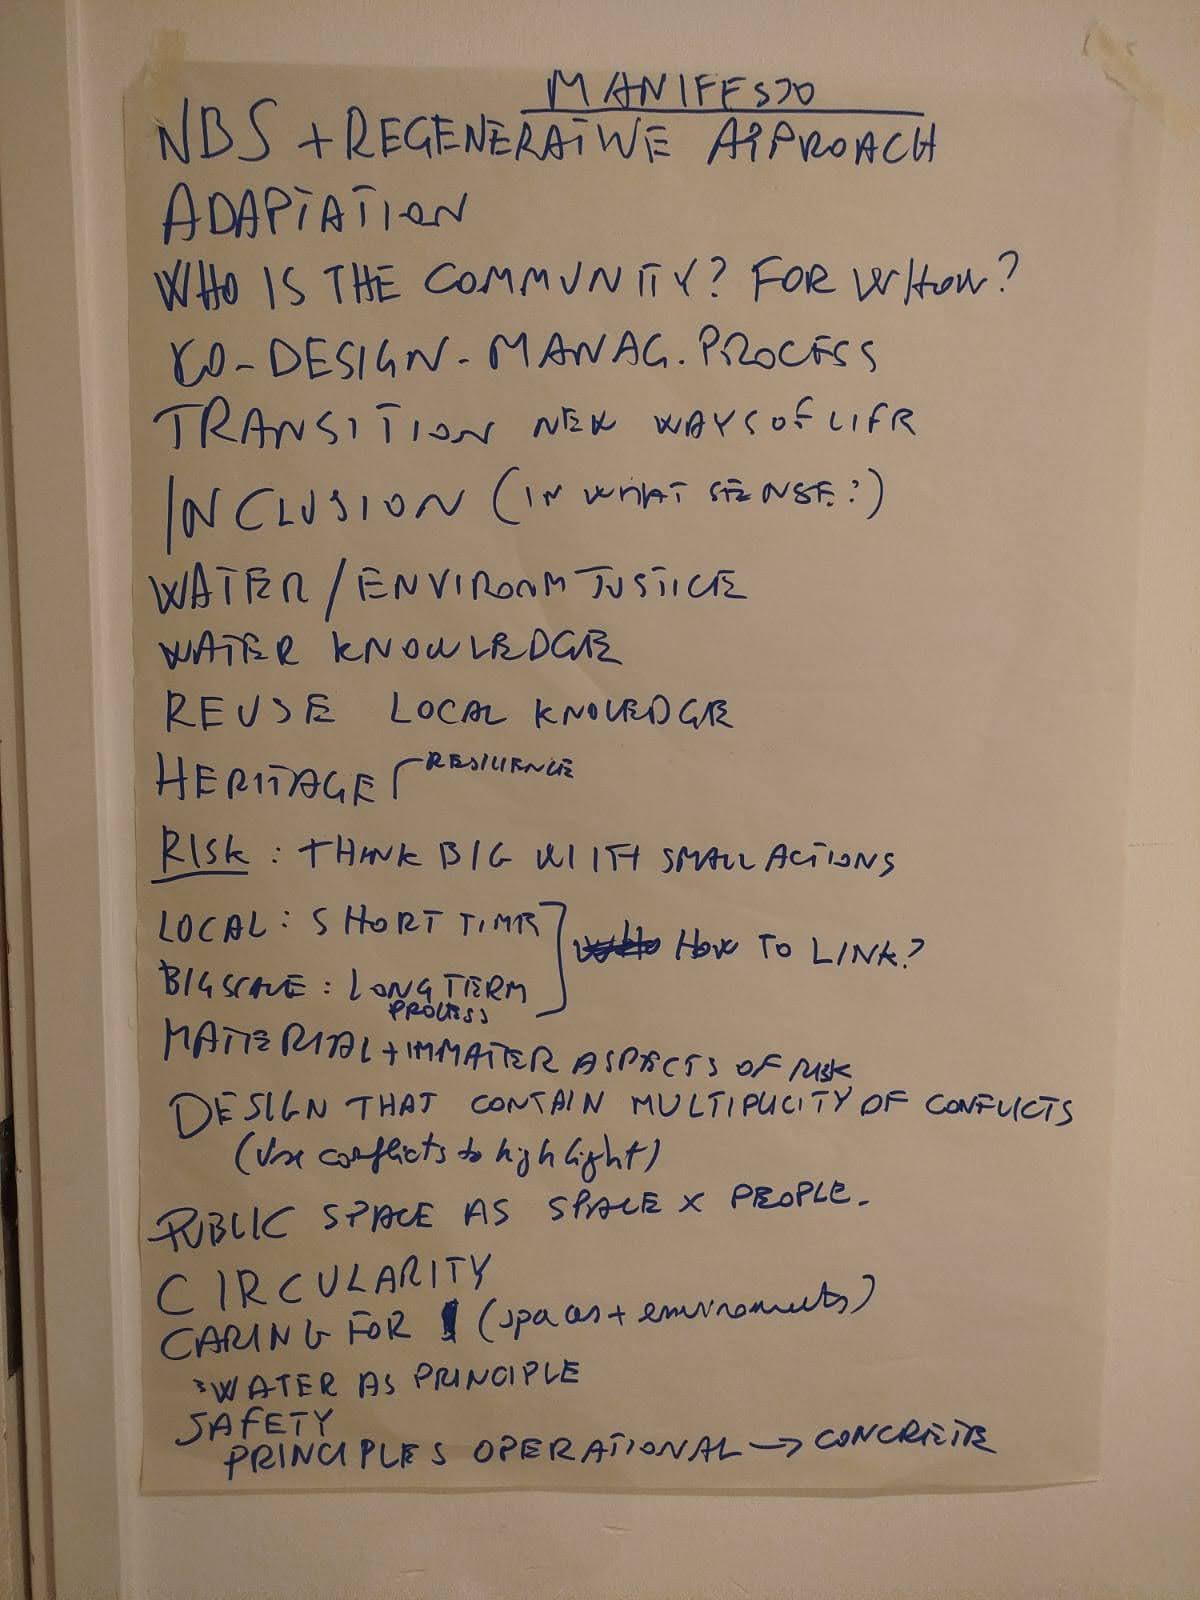 MANIFESTO
NBS + REGENERATIVE APPROACH
ADAPTATION
WHO IS THE COMMUNITY? FOR WHOM?
CO-DESIGN-MANAG. PROCESS
TRANSITION NEW WAYS OF LIFE
INCLUSION (IN WHAT SENSE?)
WATER / ENVIRONM JUSTICE
WATER KNOWLEDGE
REUSE LOCAL KNOWLEDGE
HERITAGE RESILIENCE
RISK : THINK BIG WITH SMALL ACTIONS
LOCAL : SHORT TIME
HOW TO LINK?
BIG SCALE : LONG TERM
PROCESS
MATERIAL + IMMATER ASPECTS OF RISK
DESIGN THAT CONTAIN MULTIPLICITY OF CONFLICTS
(Use conflicts to highlight)
PUBLIC SPACE AS SPACE X PEOPLE.
CIRCULARITY
CARING FOR (spaces + environments)
WATER AS PRINCIPLE
SAFETY
PRINCIPLES OPERATIONAL → CONCRETE